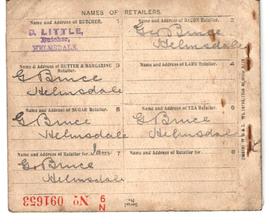 NAMES OF RETAILERS.
Name and Address of BUTCHER. 1
D. LITTLE,
Butcher,
HELMSDALE.
Name and Address of BACON Retailer. 2
G Bruce
Helmsdale
Name & Address of BUTTER & MARGARINE Retailer. 3
G Bruce
Helmsdale
Name and Address of LARD Retailer. 4
Name and Address of SUGAR Retailer. 5
G Bruce
Helmsdale
Name and Address of TEA Retailer. 6
G Bruce
Helmsdale
Name and Address of Retailer for Jam 7
G Bruce
Helmsdale
Name and Address of Retailer for 8
N 9
No 091653
Serial No.